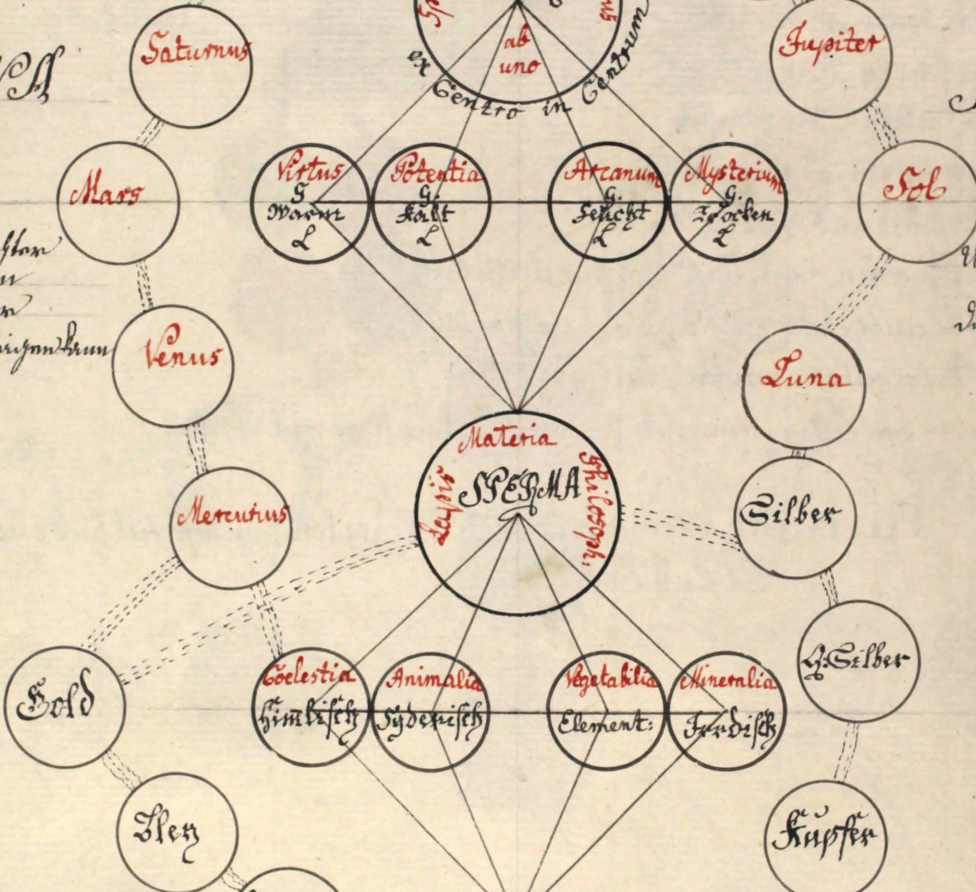 Saturnus
ab
uno
Jupiter
ex Centro in Centrum
Mars
Virtus
G
Warm
L
Potentia
G.
Kalt
L
Arcanum
G.
Feücht
L
Mysterium
G.
Trocken
L
Sol
Venus
Luna
Materia
Lapis
SPERMA
Philosoph:
Mercurius
Silber
Gold
Coelestia
Himlisch
Animalia
Syderisch
Vegetabilia
Element:
Mineralia
Irrdisch
Q. Silber
Bley
Kupfer